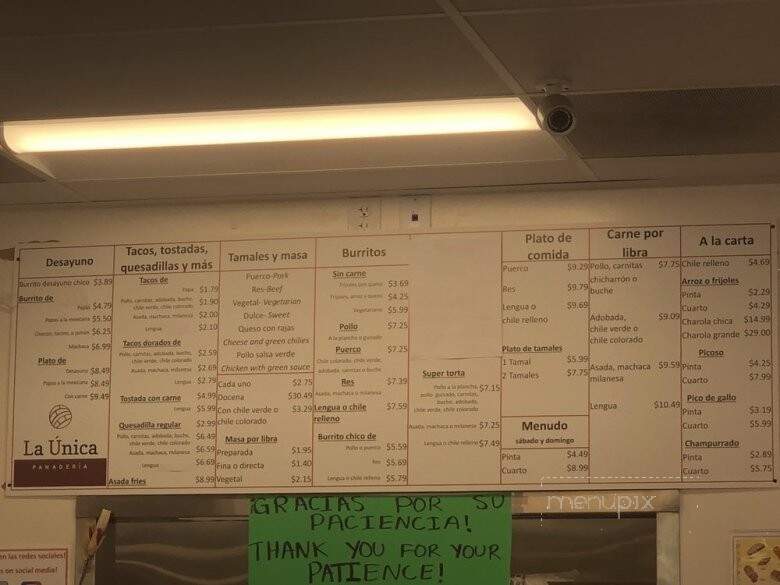 Desayuno
Burrito desayuno chico $3.89
Burrito de
Pollo $4.79
Papas a la mexicana $5.50
$6.25
Machaca $6.99
Plato de
Desayuno $8.49
Papas a la mexicana $8.49
Con carne $9.49
La Única
PANADERÍA
Tacos, tostadas,
quesadillas y más
Tacos de
Papa $1.79
Pollo, carnitas, adobada, buche, $1.90
chile verde, chile colorado
Asada, machaca, milanesa $2.00
Lengua $2.10
Tacos dorados de
Pollo, carnitas, adobada, buche, $2.59
chile verde, chile colorado
Asada, machaca, milanesa $2.69
Lengua $2.79
Tostada con carne $4.99
Lengua $5.99
Quesadilla regular $2.99
Pollo, carnitas, adobada, buche, $6.49
chile verde, chile colorado
Asada, machaca, milanesa $6.59
Lengua $6.69
Asada fries $8.99
Tamales y masa
Puerco-Pork
Res-Beef
Vegetal- Vegetarian
Dulce- Sweet
Queso con rajas
Cheese and green chilies
Pollo salsa verde
Chicken with green sauce
Cada uno $2.75
Docena $30.49
Con chile verde o $3.29
chile colorado
Masa por libra
Preparada $1.95
Fina o directa $1.40
Vegetal $2.15
Burritos
Sin carne
Frijoles con queso $3.69
Frijoles, arroz y queso $4.25
Vegetariano $5.99
Pollo $7.25
A la plancha o guisado
Puerco $7.25
Chile colorado, chile verde,
adobada, carnitas o buche
Res $7.39
Asada, machaca o milanesa
Lengua o chile $7.59
relleno
Burrito chico de
Pollo o puerco $5.59
Res $5.69
Lengua o chile relleno $5.79
Super torta
Pollo a la plancha, $7.15
pollo guisado, carnitas,
buche, adobada,
chile verde, chile colorado
Asada, machaca o milanesa $7.25
Lengua o chile relleno $7.49
Plato de
comida
Puerco $9.29
Res $9.79
Lengua o $9.69
chile relleno
Plato de tamales
1 Tamal $5.99
2 Tamales $7.75
Menudo
sábado y domingo
Pinta $4.49
Cuarto $8.99
Carne por
libra
Pollo, carnitas $7.75
chicharrón o
buche
Adobada, $9.09
chile verde o
chile colorado
Asada, machaca $9.59
milanesa
Lengua $10.49
A la carta
Chile relleno $4.69
Arroz o frijoles
Pinta $2.29
Cuarto $4.29
Charola chica $14.99
Charola grande $29.00
Picoso
Pinta $4.25
Cuarto $7.99
Pico de gallo
Pinta $3.19
Cuarto $5.99
Champurrado
Pinta $2.89
Cuarto $5.75
menupix
GRACIAS POR SU
PACIENCIA!
THANK YOU FOR YOUR
PATIENCE!
en las redes sociales!
s on social media!